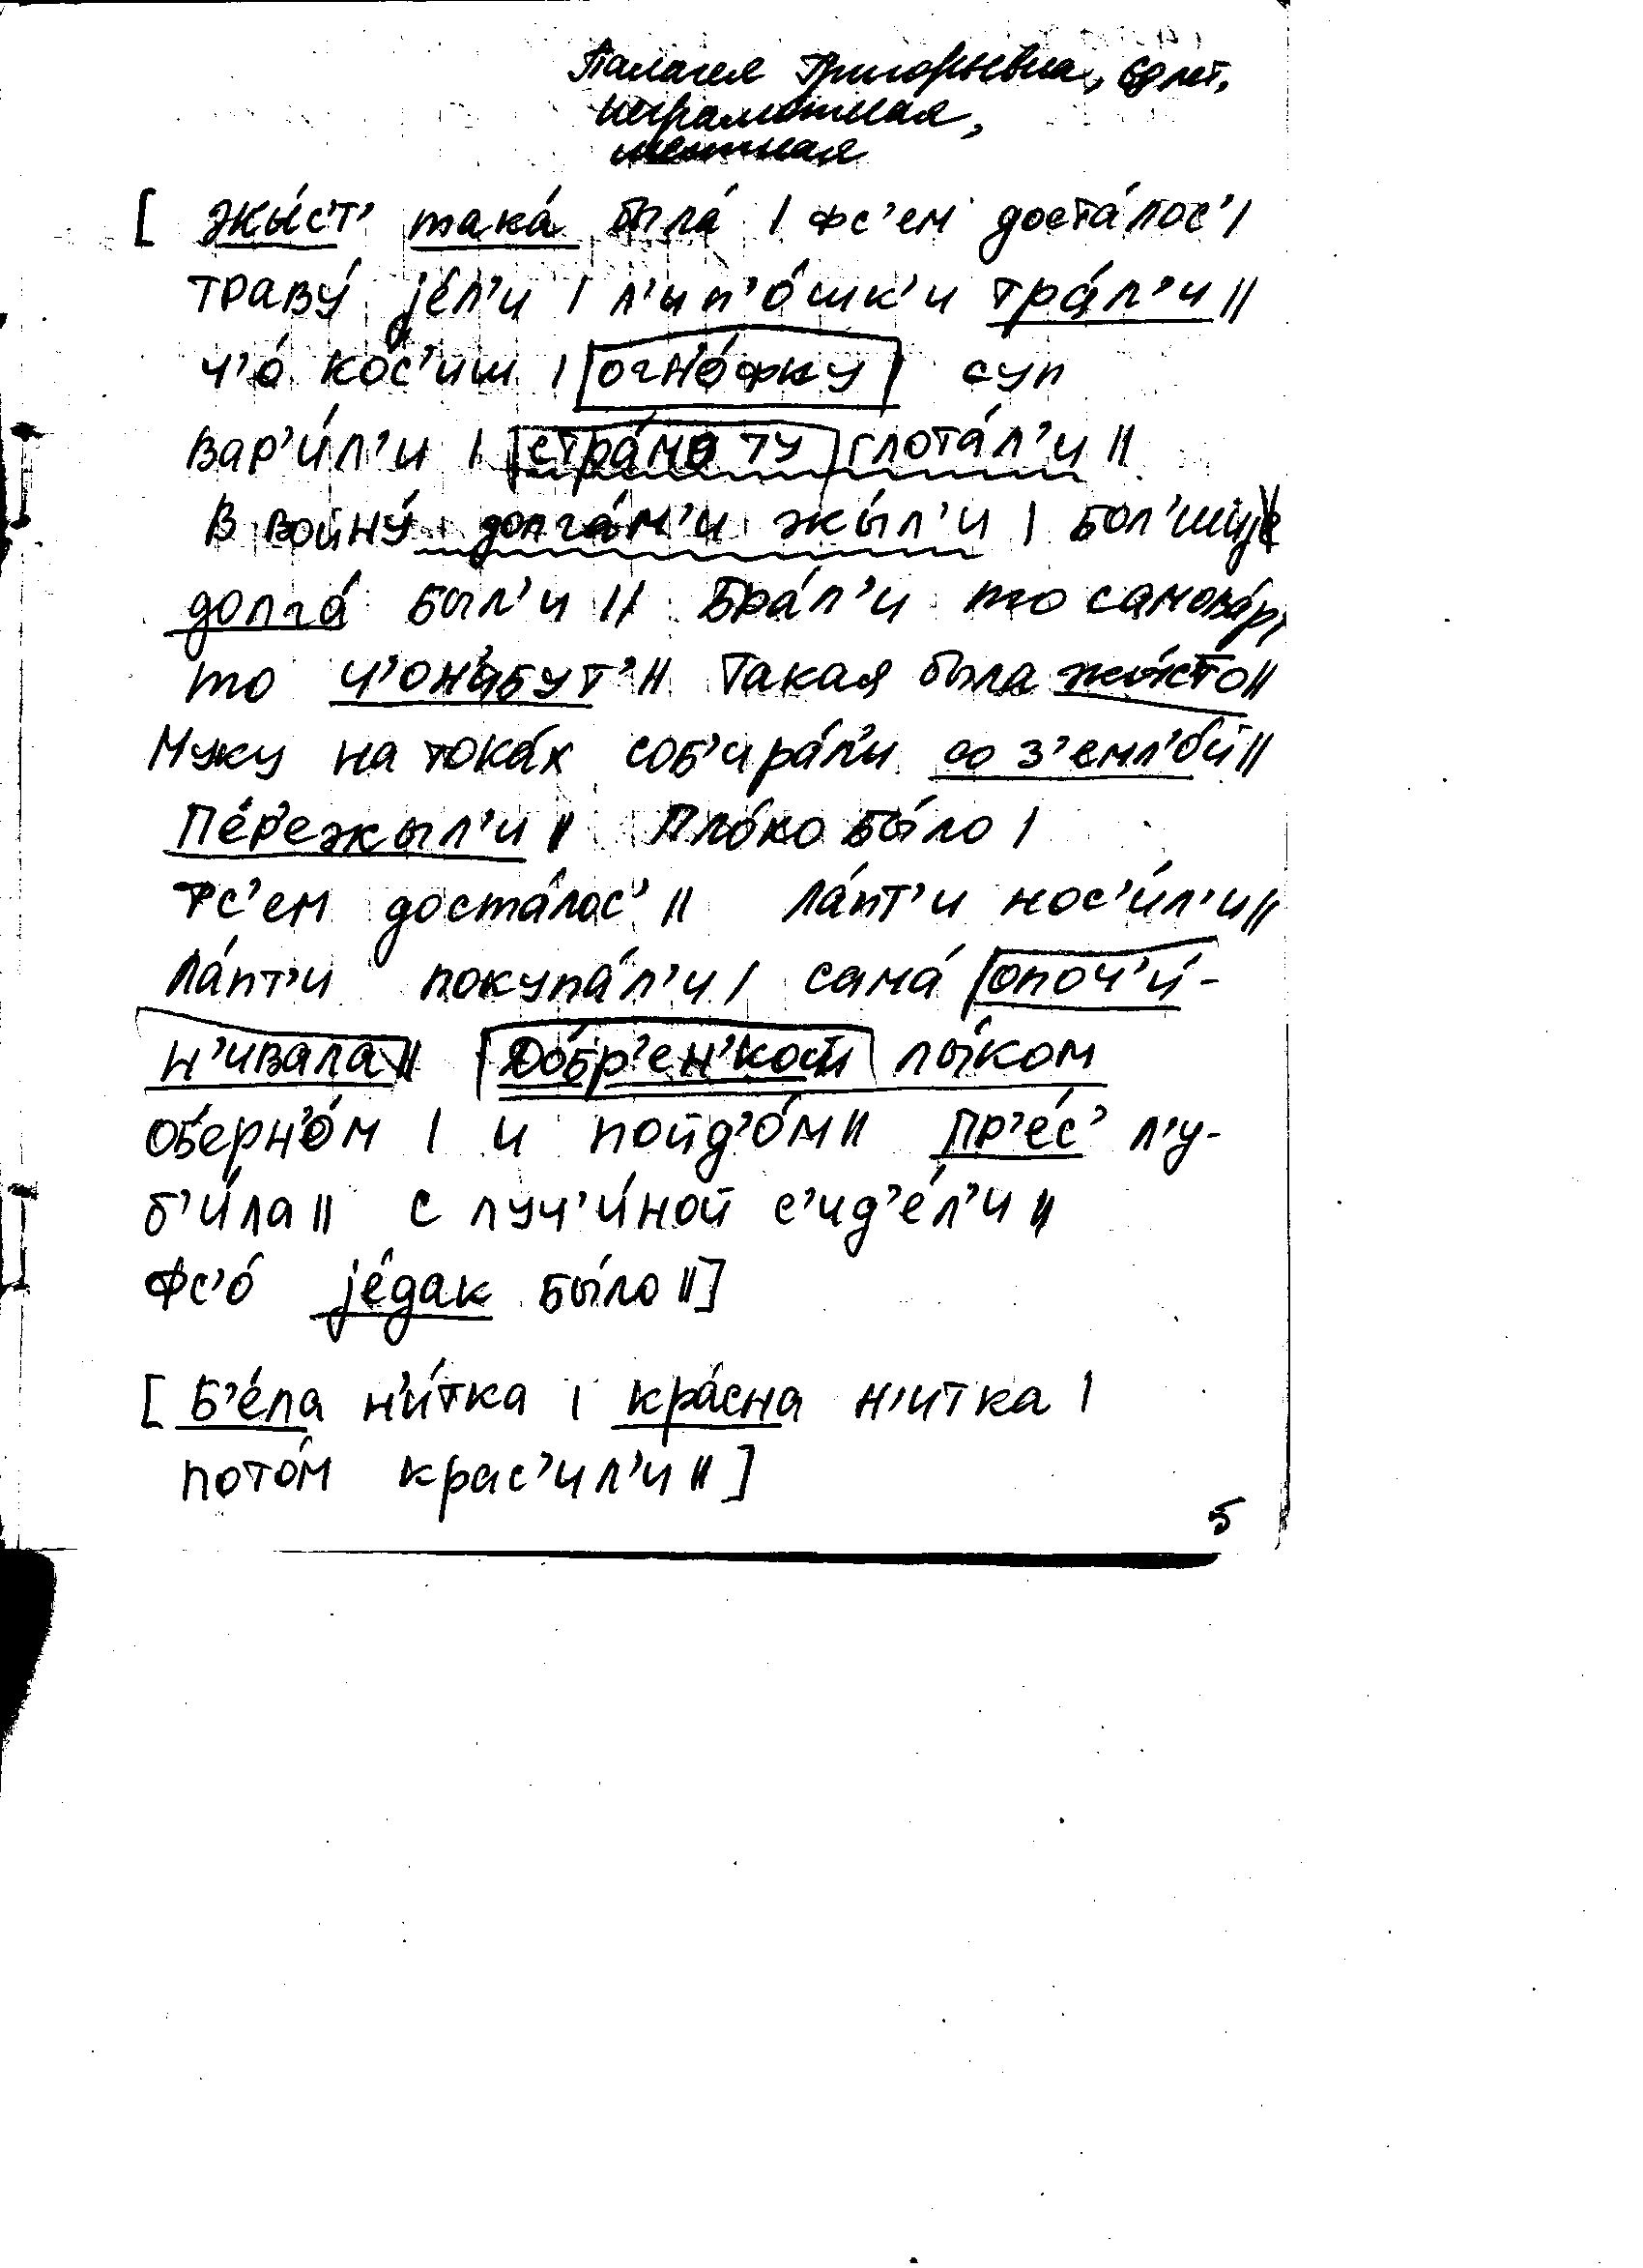 Палагея Григорьевна, 69 лет,
неграмотная,
местная
[ жы́с'т' така́ была́ | фс'ем доста́лос' |
траву́ jе́л'и | л'ип'о́шк'и тра́л'и ||
ч'о́ ко́с'иш | огн'о́фку суп
вар'и́л'и | стра́мо ту глота́л'и ||
в войну́ долга́м'и жы́л'и | бол'шиjе
долга́ был'и || Бра́л'и то самова́р,
то ч'он'ибут' || Такая была жы́сто ||
Муку на тока́х соб'ира́л'и со з'емл'о́й ||
Пе́р'ежыл'и || Пло́ко бы́ло |
Фс'ем доста́лос' || ла́пт'и нос'и́л'и ||
Ла́пт'и покупа́л'и | сама́ опоч'и́-
н'ивала || До́бр'ен'кой лы́ком
оберн'о́м | и пойд'о́м || Пр'ес' л'у-
б'и́ла || с луч'и́ной с'ид'е́л'и ||
Фс'о́ jе́дак бы́ло || ]
[ Б'е́ла н'и́тка | кра́сна н'итка |
пото́м крас'ил'и || ]
5